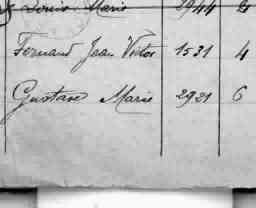 Louis Marie 2944 6
Fernand Jean Victor 1531 4
Gustave Marie 2921 6